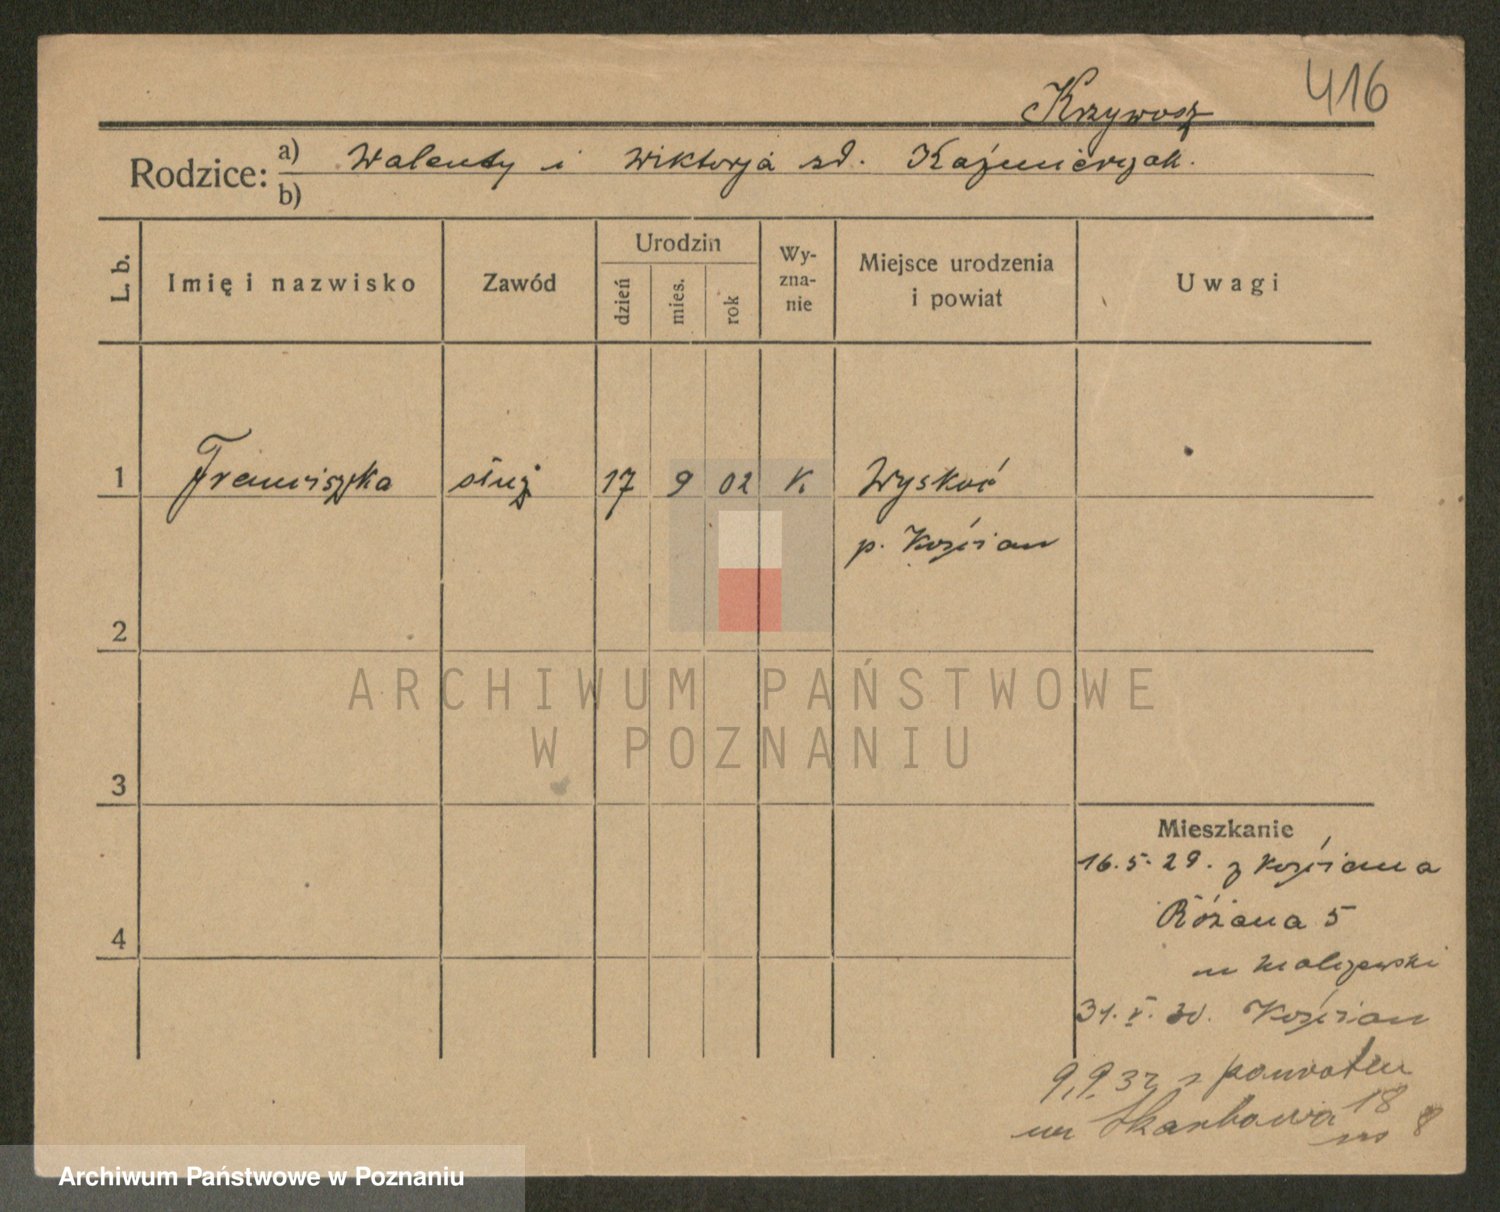 416
Krzywosz
Rodzice: a) Walenty i Wiktorja zd. Kaźmierczak.
b)
L. b.
Imię i nazwisko
Zawód
Urodzin
dzień
mies.
rok
Wy-
zna-
nie
Miejsce urodzenia
i powiat
Uwagi
1 Franciszka służ 17 9 02 K. Wyskoć
p. Kościan
2
3
4
Mieszkanie
16.5.29. z Kościana
Różana 5
31.V.30. Kościan
9.9.32 z powrotem
Skarbowa 18
8
ARCHIWUM PAŃSTWOWE
W POZNANIU
Archiwum Państwowe w Poznaniu